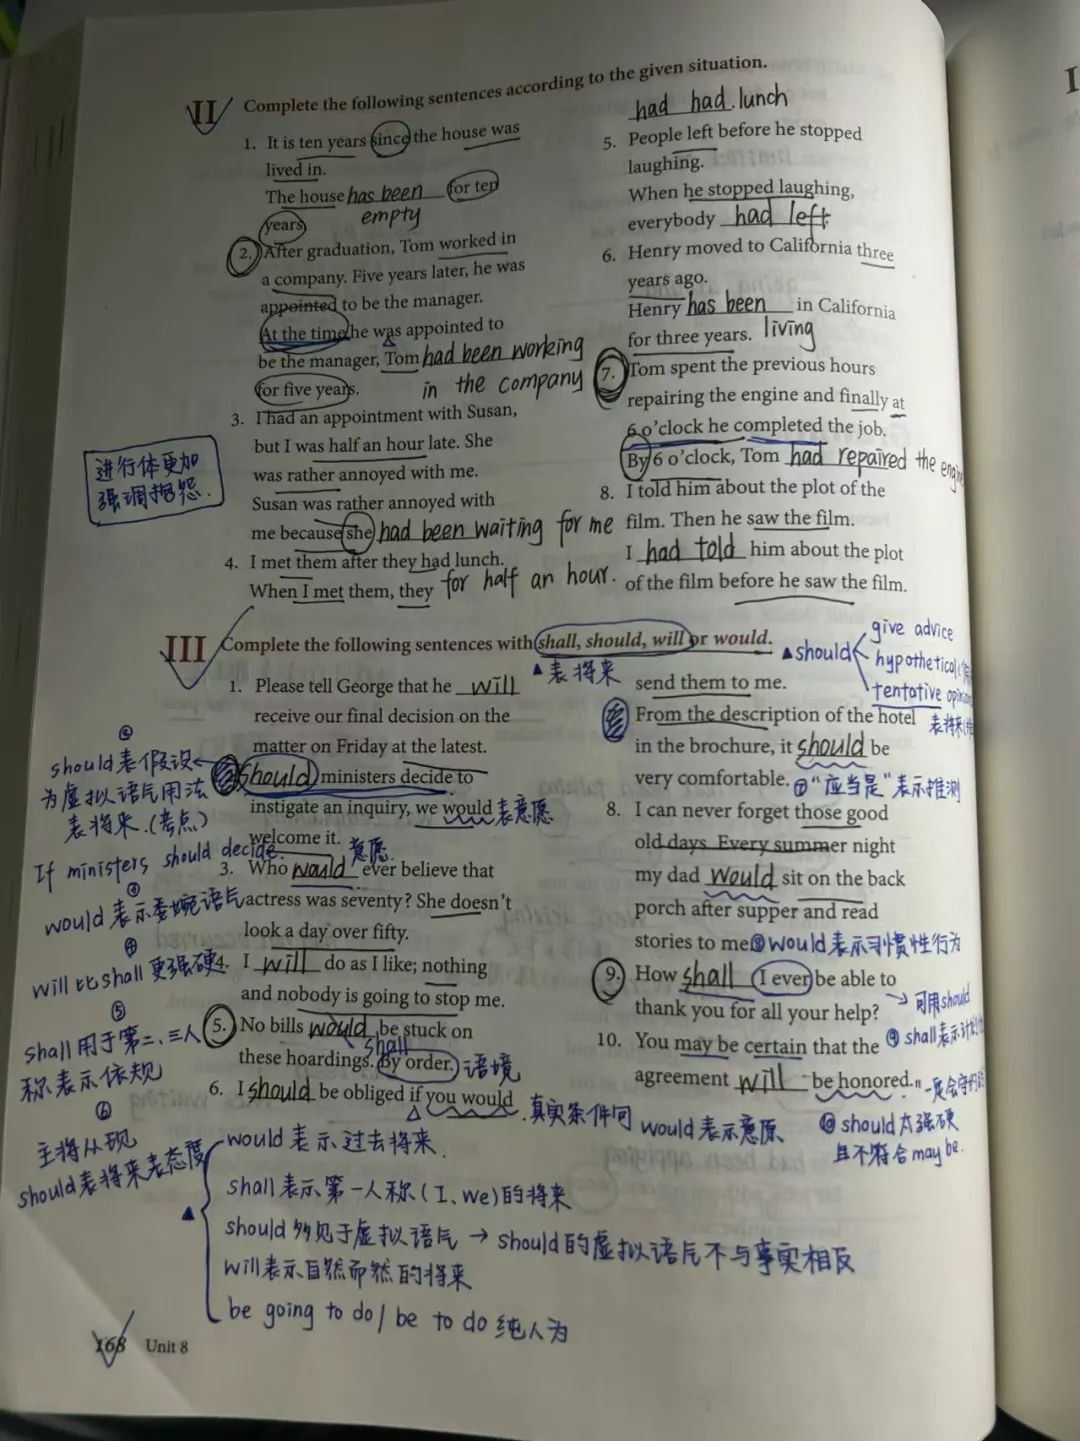 II Complete the following sentences according to the given situation.
1. It is ten years since the house was
lived in.
The house has been for ten
empty
years
2. After graduation, Tom worked in
a company. Five years later, he was
appointed to be the manager.
At the time he was appointed to
be the manager, Tom had been working
for five years. in the company
3. I had an appointment with Susan,
but I was half an hour late. She
was rather annoyed with me.
Susan was rather annoyed with
me because she had been waiting for me
for half an hour.
进行体更加
强调抱怨.
4. I met them after they had lunch.
When I met them, they
had had lunch
5. People left before he stopped
laughing.
When he stopped laughing,
everybody had left.
6. Henry moved to California three
years ago.
Henry has been in California
for three years. living
7. Tom spent the previous hours
repairing the engine and finally at
6 o'clock he completed the job.
By 6 o'clock, Tom had repaired the engine
8. I told him about the plot of the
film. Then he saw the film.
I had told him about the plot
of the film before he saw the film.
III Complete the following sentences with shall, should, will or would.
▲表将来
▲should
give advice
hypothetical
tentative opinion
1. Please tell George that he will
receive our final decision on the
matter on Friday at the latest.
should ministers decide to
instigate an inquiry, we would 表意愿
welcome it.
意愿.
3. Who would ever believe that
actress was seventy? She doesn't
look a day over fifty.
4. I will do as I like; nothing
and nobody is going to stop me.
5. No bills would be stuck on
shall
these hoardings. By order. 语境
6. I should be obliged if you would
send them to me.
From the description of the hotel
in the brochure, it should be
very comfortable. ⑦"应当是"表示推测
8. I can never forget those good
old days. Every summer night
my dad would sit on the back
porch after supper and read
stories to me. ⑧would表示习惯性行为
9. How shall I ever be able to
thank you for all your help?
→可用should
⑨shall表示计划
10. You may be certain that the
agreement will be honored.
⑩should太强硬
且不符合may be.
②
should表假设
为虚拟语气用法
表将来.(考点)
If ministers should decide.
would表示委婉语气
④
will比shall更强硬
⑤
shall用于第二、三人
称表示依规
⑥
主将从现
should表将来表态度
真实条件句 would表示意愿、
▲
would表示过去将来.
shall表示第一人称(I、we)的将来
should多见于虚拟语气→should的虚拟语气不与事实相反
will表示自然而然的将来
be going to do / be to do 纯人为
168 Unit 8